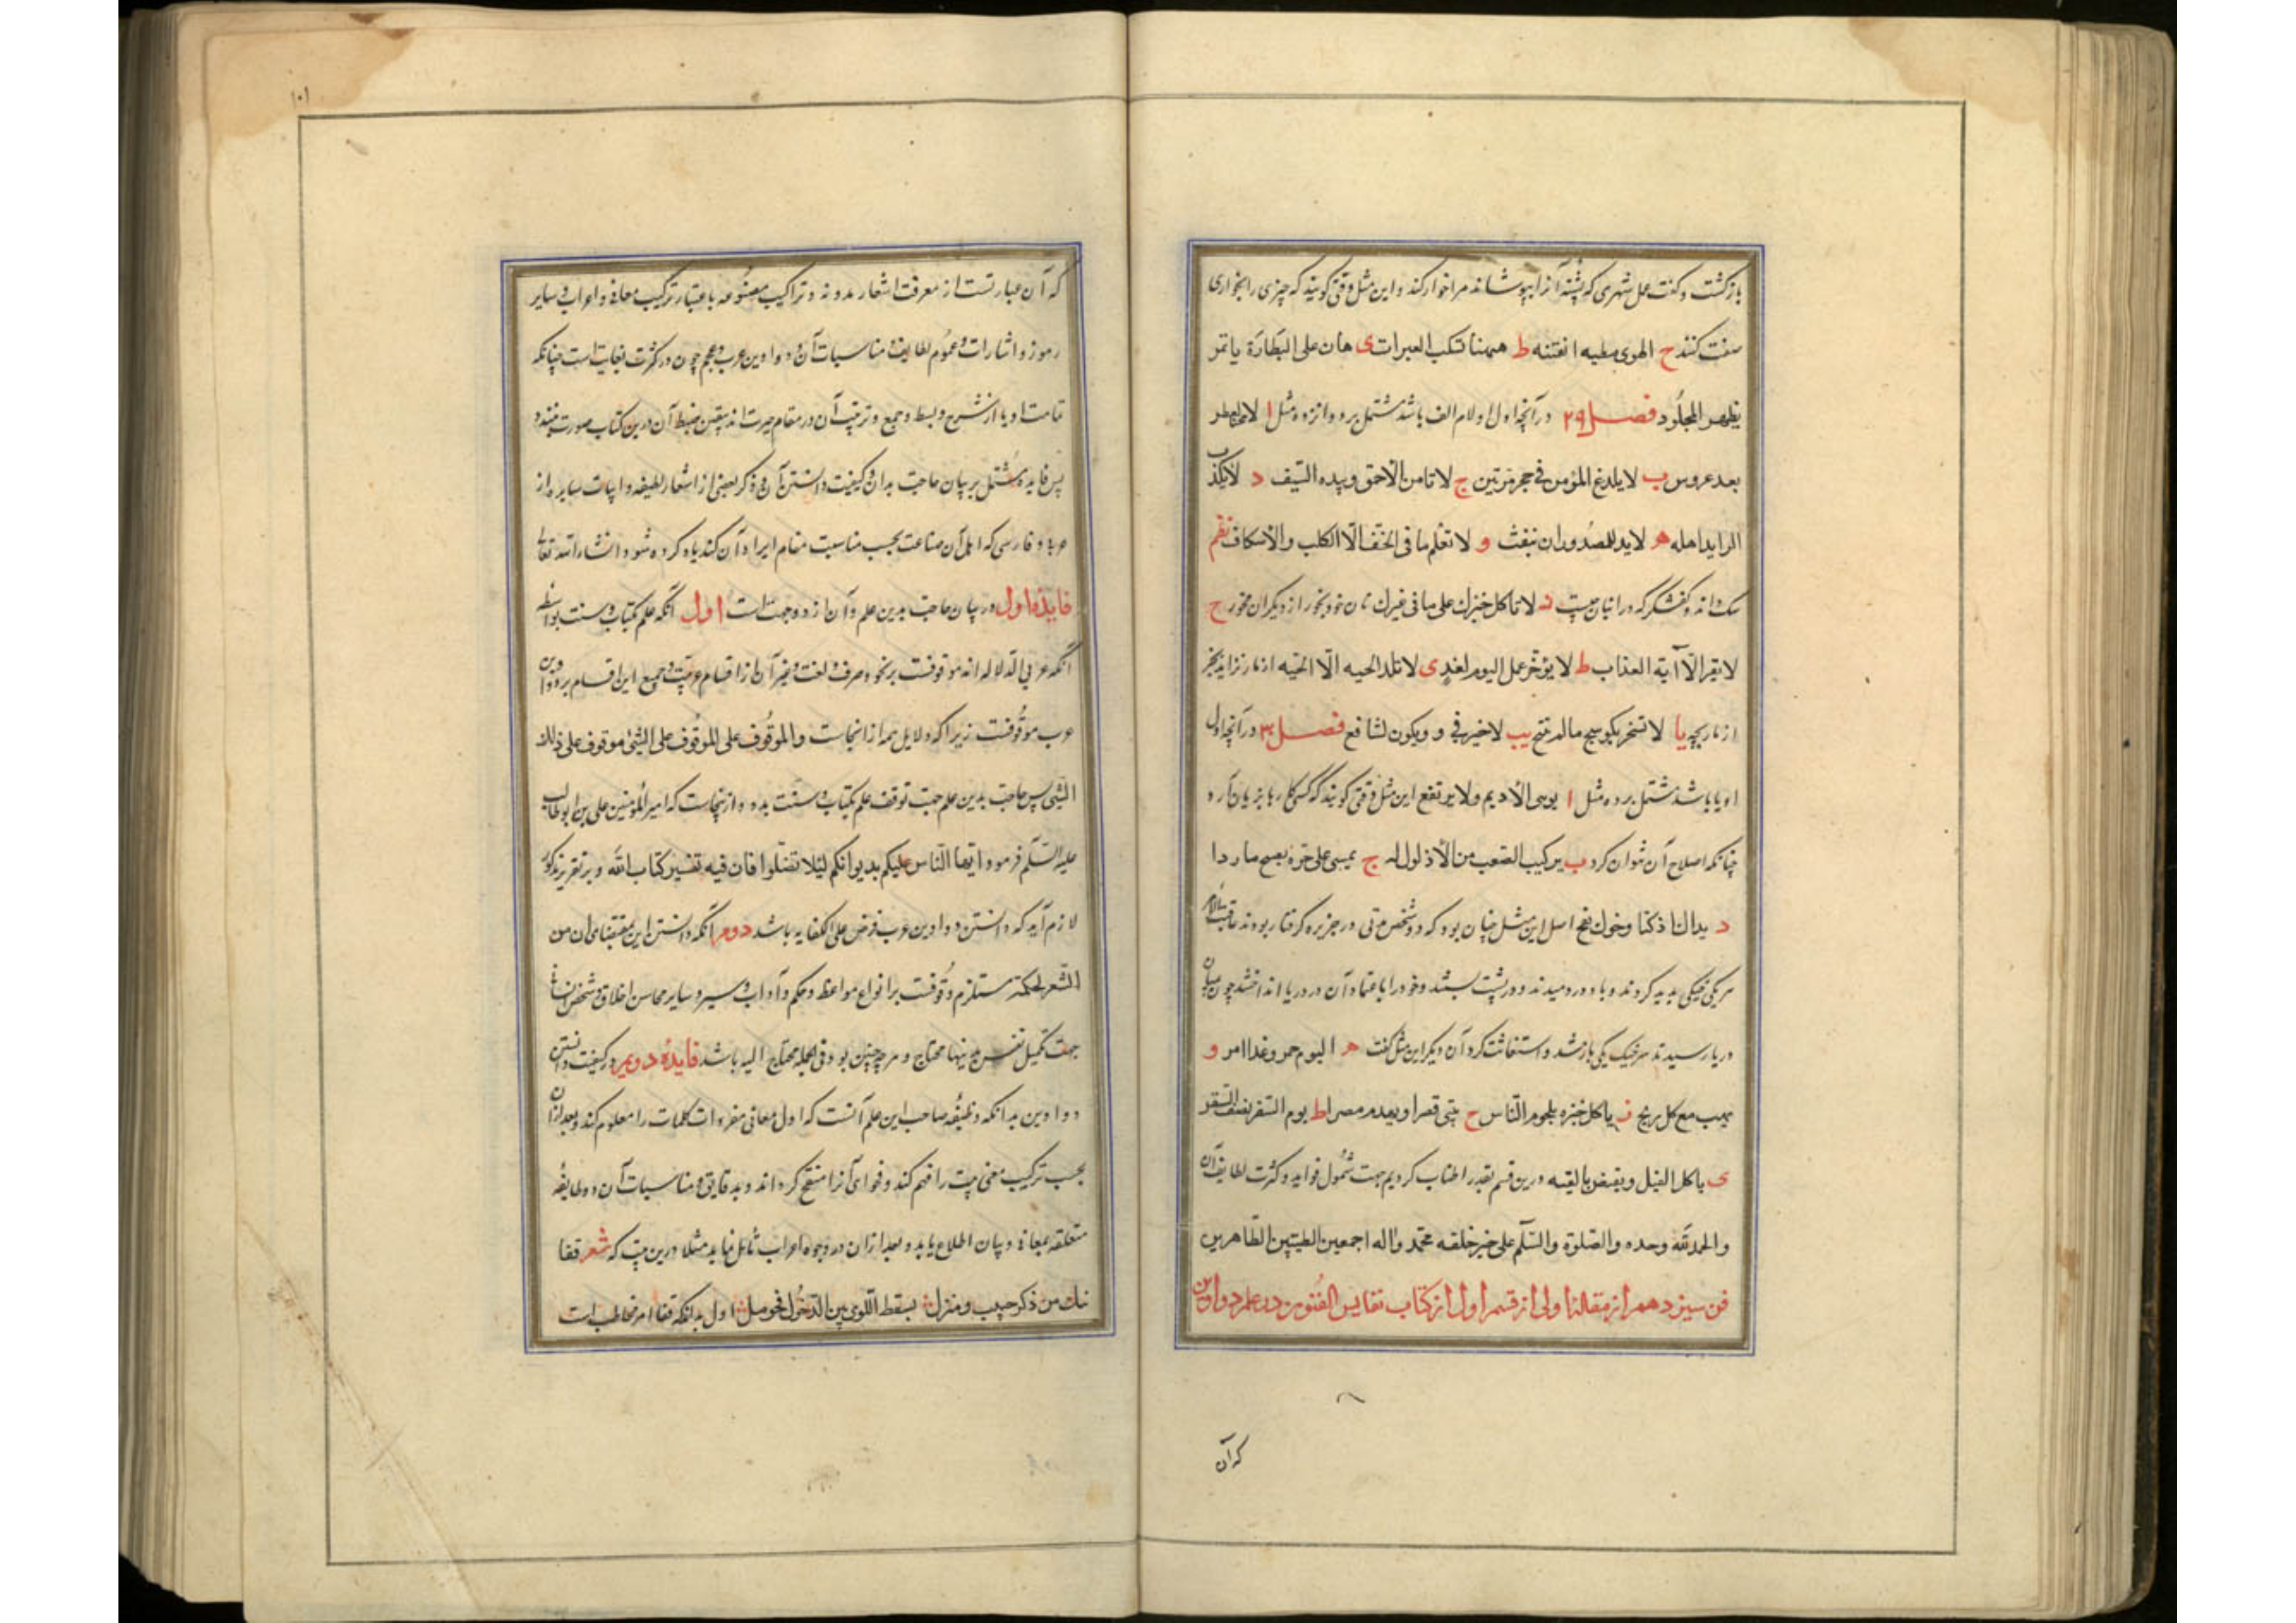 بازگشت و گفت عمل شهری که پشه آنرا بپوشاند مرا خوار کند و این مثل وقتی گویند که چیزی را بخواری
صفت کنند ح الهوی مطیه الفتنه ط ههنا تسکب العبرات ی هان علی النظارة یا تمر
بظهر المجلود فصل ۲۹ در آنچه اول او لام الف باشد مشتمل بر دوانزده مثل ا لا عطر
بعد عروس ب لا یلدغ المؤمن فی جحر مرتین ج لا تامن الاحمق و بیده السیف د لا یکذب
الراید اهله ه لا بد للمصدور ان ینفث و لا تعلم ما فی الخف الا الکلب والاسکاف نظم
سک داند و کفشکر که در انبان چیست د لا تاکل خبزک علی ما فی غیرک نان خود بخور از دیکران مخور ح
لا یقرا الا آیة العذاب ط لا یؤخر عمل الیوم لغد ی لا تلد الحیه الا الحیه از مار نزاید بجز
از مار بچه یا لا تسخر بکوسج ما لم تلتح یب لا خیر فی ود یکون لشافع فصل ۳۰ در آنچه اول
او یا باشد مشتمل بر ده مثل ا یوسی الادیم ولا یرتفع این مثل وقتی گویند که کسی کار بزیان آرد
چنانکه اصلاح آن نتوان کرد ب یرکب الصعب من لا ذلول له ج یمسی علی حر و یصبح ما ردا
د یداک اوکتا وفوک نفخ اصل این مثل چنان بود که دو شخص وقتی در جزیره گرفتار بودند عاقبت الامر
هر یکی خیکی پدید کردند و باد در و دمیدند و در پشت بستند و خود را باعتماد آن در دریا انداختند چون بمیان
دریا رسیدند سر خیک یکی باز شد و استغاثت کرد آن دیگر این مثل گفت ه الیوم خمر و غدا امر و
یهب مع کل ریح ز یاکل خبزه بلحوم الناس ح یبنی قصرا و یهدم مصرا ط یوم السفر نصف السفر
ی یاکل الفیل و یغتص بالبقه درین قسم بقدر اطناب کردیم جهت شمول فواید و کثرت لطایف آن
والحمد لله وحده والصلوة والسلم علی خیر خلقه محمد وآله اجمعین الطیبین الطاهرین
فن سیزدهم از مقاله اولی از قسم اول از کتاب نفایس الفنون در علم دواوین
که آن
۱۰۱
که آن عبارتست از معرفت اشعار مدونه و تراکیب مصنوعه باعتبار ترکیب معانی و اعراب و سایر
رموز و اشارات و عموم لطایف و مناسبات آن و دواوین عرب و عجم چون در کثرت بغایتست چنانکه
تمامت ادبا از شرح و بسط و جمع و ترتیب آن در مقام حیرت اند یقین ضبط آن درین کتاب صورت نبندد
پس فایده مشتمل بر بیان حاجت بدان و کیفیت دانستن آن و ذکر بعضی از اشعار لطیفه و ابیات سایره از
عربی و فارسی که اهل آن صناعت بحسب مناسبت مقام ایراد آن کنند یاد کرده شود انشاء الله تعالی
فایده اول در بیان حاجت بدین علم و آن از دو جهت است اول آنکه علم کتاب و سنت بواسطه
آنکه عربی الدلاله اند موقوفست بر نحو و صرف و لغت و غیر آن از اقسام عربیت و جمیع این اقسام بر دواوین
عرب موقوفست زیرا که دلایل همه از انجاست والموقوف علی الموقوف علی الشی موقوف علی ذلک
الشی پس حاجت بدین علم جهت توقف علم کتاب و سنت بود و ازینجاست که امیر المؤمنین علی بن ابوطالب
علیه السلم فرمود ایها الناس علیکم بدیوانکم لئلا تضلوا فان فیه تفسیر کتاب الله و بر تقریر مذکور
لازم آید که دانستن دواوین عرب فرض علی الکفایه باشد دوم آنکه دانستن این بمقتضای ان من
الشعر لحکمة مستلزم وقوفست بر انواع مواعظ و حکم و آداب و سیر و سایر محاسن اخلاق و شخص انسانی
جهت تکمیل نفس بدینها محتاج و هر چه چنین بود فی الجمله محتاج الیه باشد فایده دویم در کیفیت دانستن
دواوین بدانکه وظیفه صاحب این علم آنست که اول معانی مفردات کلمات را معلوم کند و بعد از ان
بحسب ترکیب معنی بیت را فهم کند و فحوای آنرا منقح گرداند و بدقایق و مناسبات آن و لطایفه
متعلقه بمعانی و بیان اطلاع یابد و بعد از ان در وجوه اعراب تامل نماید مثلا درین بیت که شعر قفا
نبک من ذکری حبیب و منزل بسقط اللوی بین الدخول فحومل اول بدانکه قفا امر مخاطب است